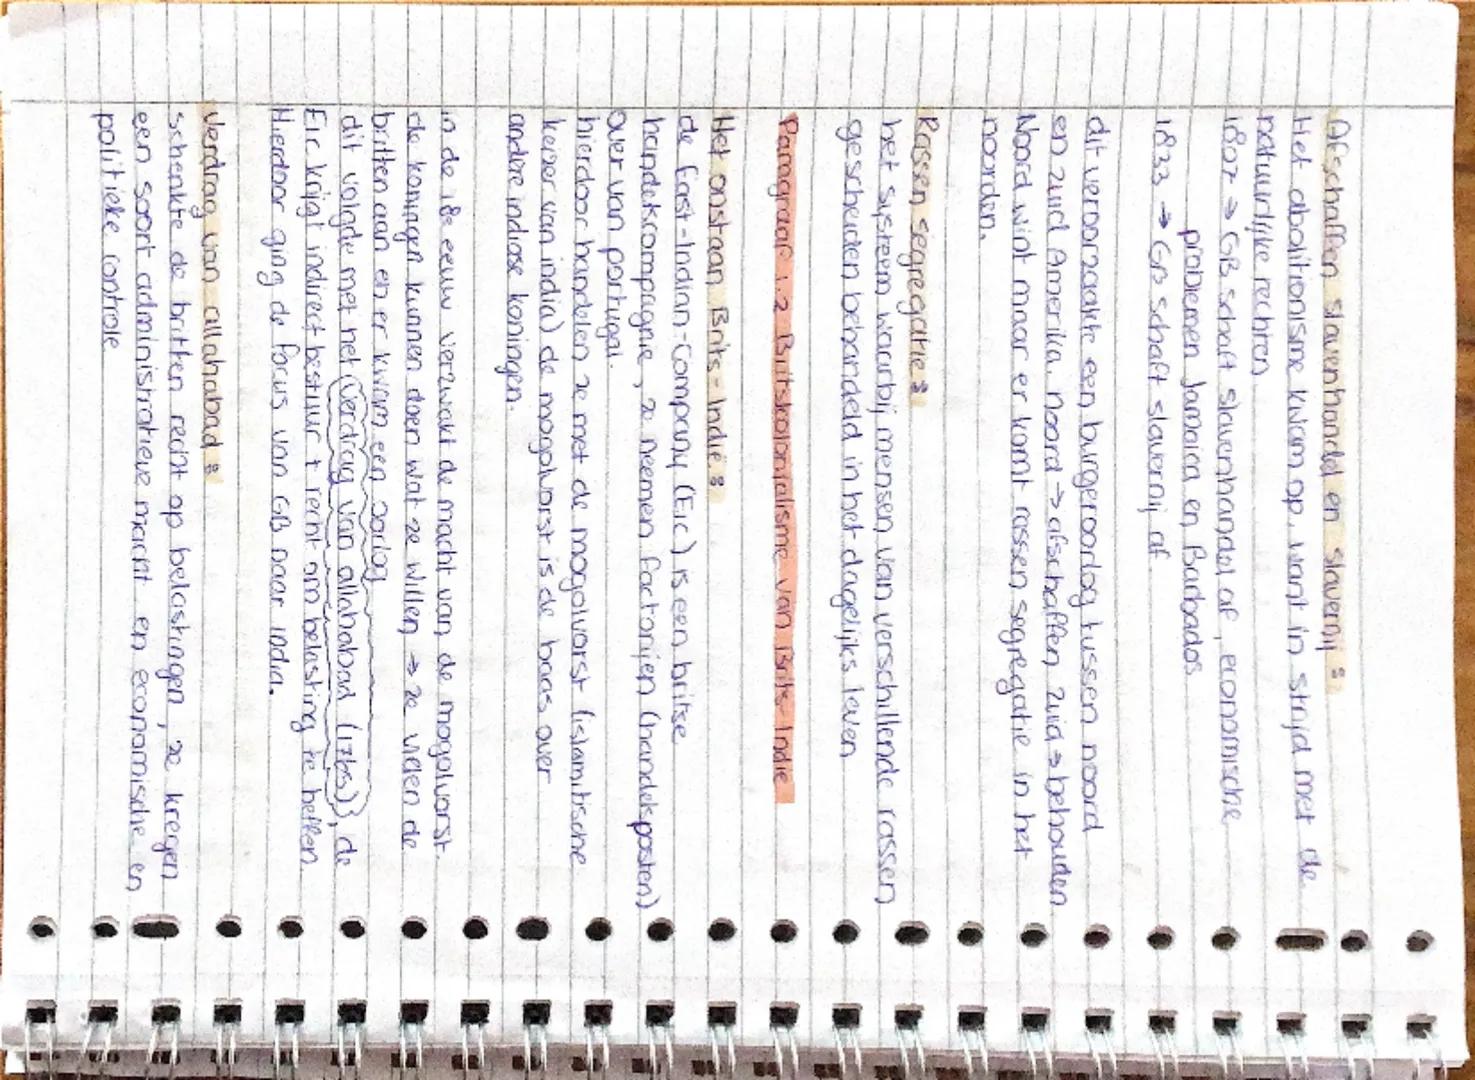 Afschaffen slavenhandel en slavernij:
Het abolitionisme kwam op, want in strijd met de
natuurlijke rechten.
1807 → GB schaft slavenhandel af, economische
problemen Jamaica en Barbados
1833 → GB schaft slavernij af
dit veroorzaakte een burgeroorlog tussen noord
en zuid Amerika. noord → afschaffen, zuid → behouden
Noord wint maar er komt rassen segregatie in het
noorden.
Rassen segregatie:
het systeem waarbij mensen van verschillende rassen
gescheiden behandeld in het dagelijks leven
Paragraaf 1.2 Britskolonialisme van Brits-Indie
Het onstaan Brits-Indie:
de East-Indian-Company (Eic) is een britse
handelscompagnie, ze neemen factorijen (handelsposten)
over van portugal.
hierdoor handelen ze met de mogolvorst (islamitische
keizer van india) de mogolvorst is de baas over
andere indiase koningen.
in de 18e eeuw verzwakt de macht van de mogolvorst.
de koningen kunnen doen wat ze willen → ze vielen de
britten aan en er kwam een oorlog
dit volgde met het (verdrag van allahabad (1765)), de
Eic krijgt indirect bestuur + recht om belasting te heffen.
Hierdoor ging de focus van GB naar India.
Verdrag van allahabad:
schenkte de britten recht op belastingen, ze kregen
een soort administratieve macht en economische en
politieke controle